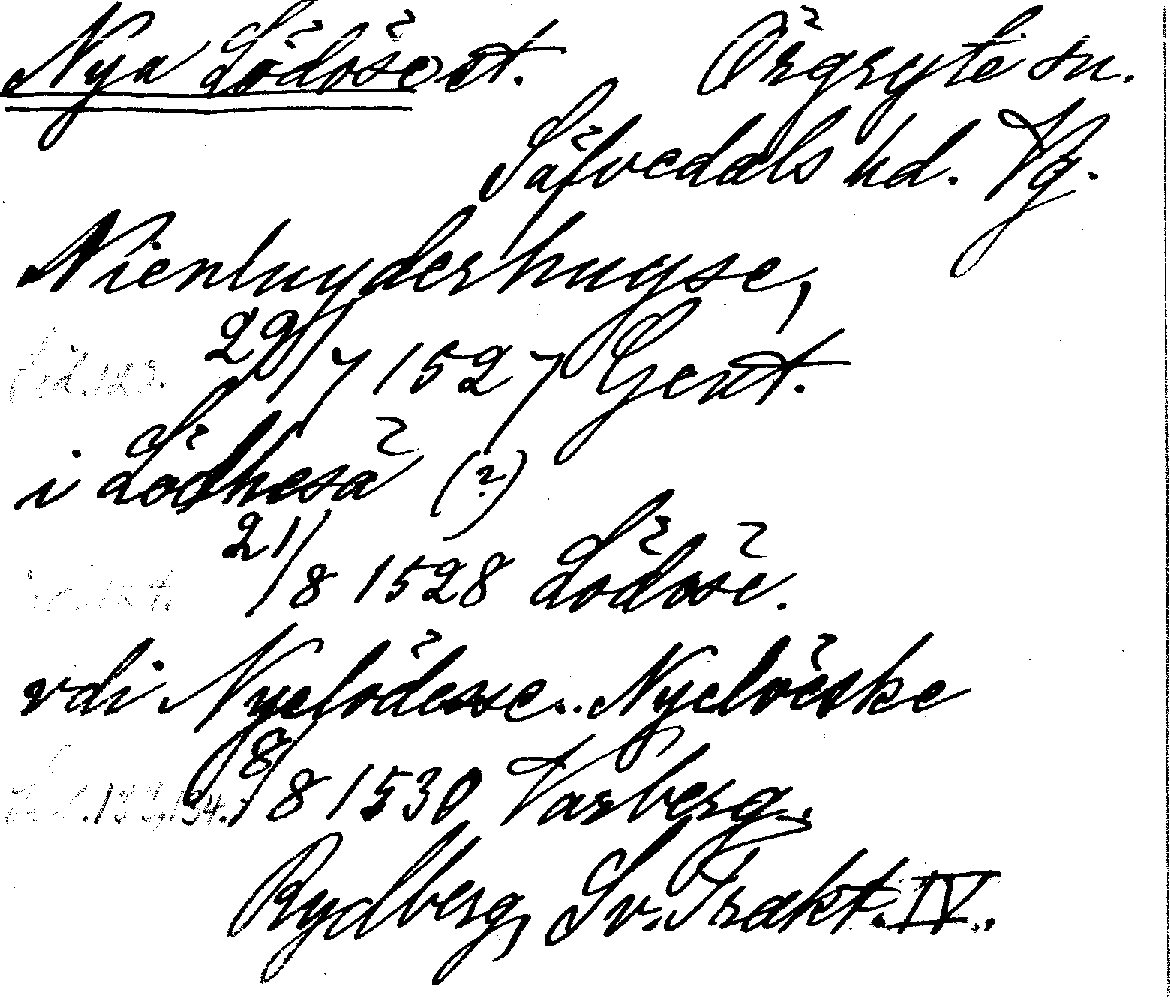 Nya Lödöse st. Örgryte sn.
Säfvedals hd. Vg.
Nienluyderhuyse,
29/7 1527 Gent.
i Lödheså (?)
21/8 1528 Lödose.
vdi Nyelödesse.. Nyelöeske
8/8 1530 Varberg.
Rydberg, Sv. Trakt. IV.